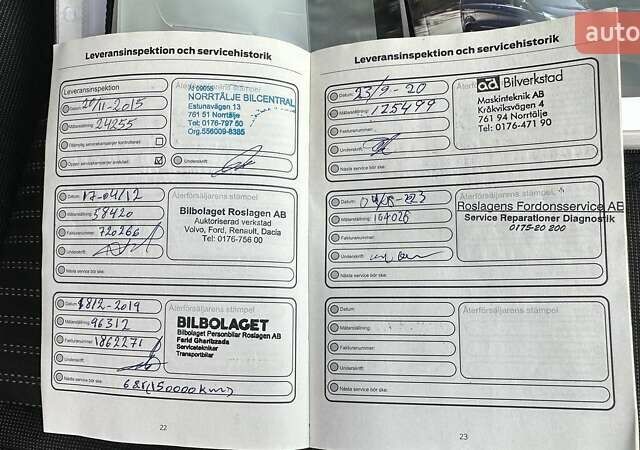 Leveransinspektion och servicehistorik
Leveransinspektion
Datum: 20/11-2015
Mätarställning: 24255
Fullständig servicekampanjer kontrollerad
Öppen servicekampanjer avslutad:
Återförsäljarens stampel
NORRTÄLJE BILCENTRAL
Estunavägen 13
761 51 Norrtälje
Tel: 0176-797 50
Org.556009-8385
Underskrift:
Datum: 17-04/12
Mätarställning: 58420
Fakturanummer: 720266
Underskrift:
Nästa service bör ske:
Återförsäljarens stämpel
Bilbolaget Roslagen AB
Auktoriserad verkstad
Volvo, Ford, Renault, Dacia
Tel: 0176-756 00
Datum: 18/2-2019
Mätarställning: 96312
Fakturanummer: 1862271
Underskrift:
Nästa service bör ske:
6ÅR(150000km)
Återförsäljarens stämpel
BILBOLAGET
Bilbolaget Personbilar Roslagen AB
Farid Gharibzada
Servicetekniker
Transportbilar
22
Leveransinspektion och servicehistorik
Datum: 23/9-20
Mätarställning: 125499
Fakturanummer:
Underskrift:
Nästa service bör ske:
Återförsäljarens
ad Bilverkstad
Maskinteknik AB
Kråkviksvägen 4
761 94 Norrtälje
Tel: 0176-471 90
Datum:
Mätarställning:
Fakturanummer:
Underskrift:
Nästa service bör ske:
Återförsäljarens stämpel
Roslagens Fordonsservice AB
Service Reparationer Diagnostik
0175-20 200
Datum:
Mätarställning:
Fakturanummer:
Underskrift:
Nästa service bör ske:
Återförsäljarens stämpel
23
auto